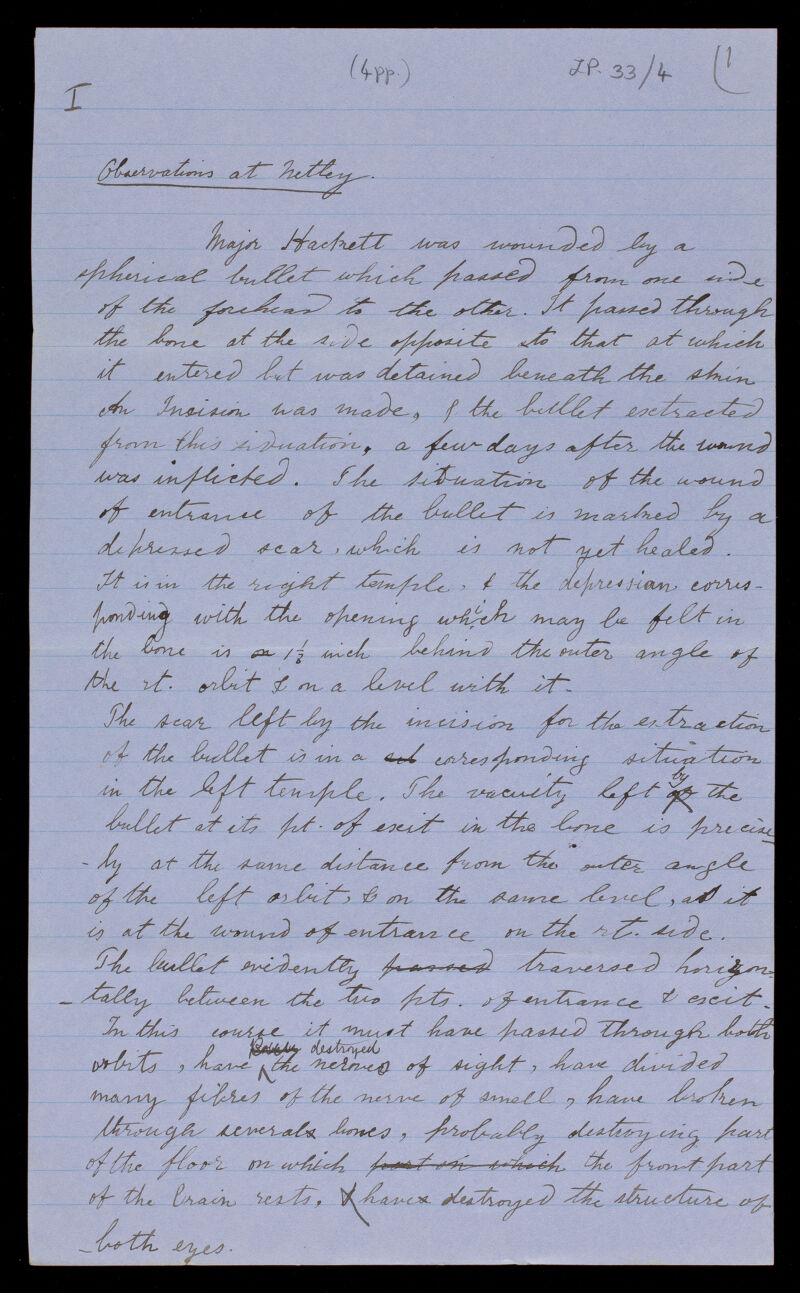 (4pp.) J.P. 33/4 (1
I
Observations at Netley.
Major Hackett was wounded by a
spherical bullet which passed from one side
of the forehead to the other. It passed through
the bone at the side opposite to that at which
it entered but was detained beneath the skin
An Incision was made, & the bullet extracted
from this situation, a few days after the wound
was inflicted. The situation of the wound
of entrance of the bullet is marked by a
depressed scar, which is not yet healed.
It is in the right temple, & the depression corres-
ponding with the opening which may be felt in
the bone is 1½ inch behind the outer angle of
the rt. orbit & on a level with it.
The scar left by the incision for the extraction
of the bullet is in a corresponding situation
in the left temple. The vacuity left by the
bullet at its pt. of exit in the bone is precise
-ly at the same distance from the outer angle
of the left orbit, & on the same level, as it
is at the wound of entrance on the rt. side.
The bullet evidently passed traversed horizon-
-tally between the two pts. of entrance & exit.
In this course it must have passed through both
orbits, have destroyed the nerves of sight, have divided
many fibres of the nerve of smell, have broken
through several bones, probably destroying part
of the floor on which part on which the front part
of the brain rests. & have destroyed the structure of
-both eyes.